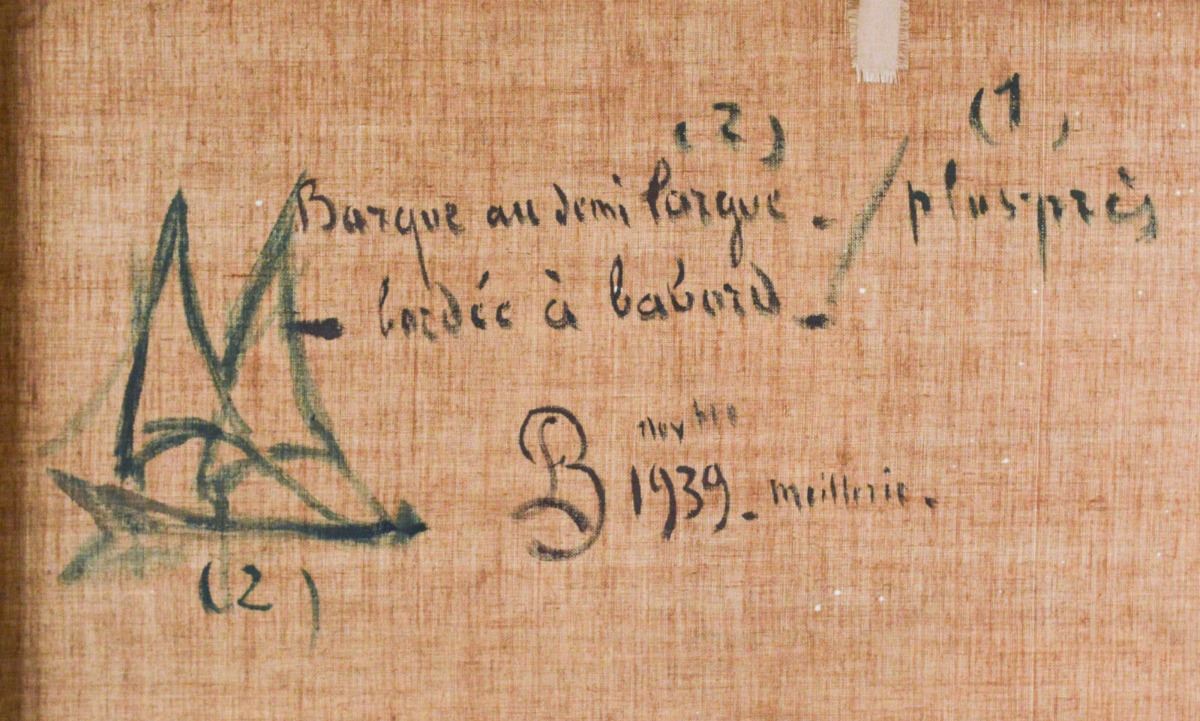 (2) (1)
Barque au demi largue. / plus-près
- bordée à babord -
novbre
B 1939. meillerie.
(2)